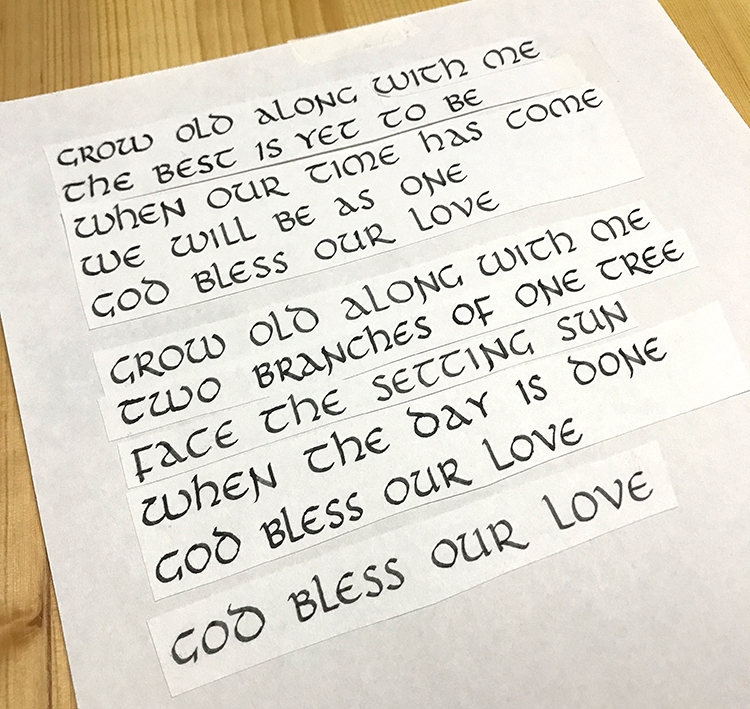 GROW OLD ALONG WITH ME
THE BEST IS YET TO BE
WHEN OUR TIME HAS COME
WE WILL BE AS ONE
GOD BLESS OUR LOVE
GROW OLD ALONG WITH ME
TWO BRANCHES OF ONE TREE
FACE THE SETTING SUN
WHEN THE DAY IS DONE
GOD BLESS OUR LOVE
GOD BLESS OUR LOVE